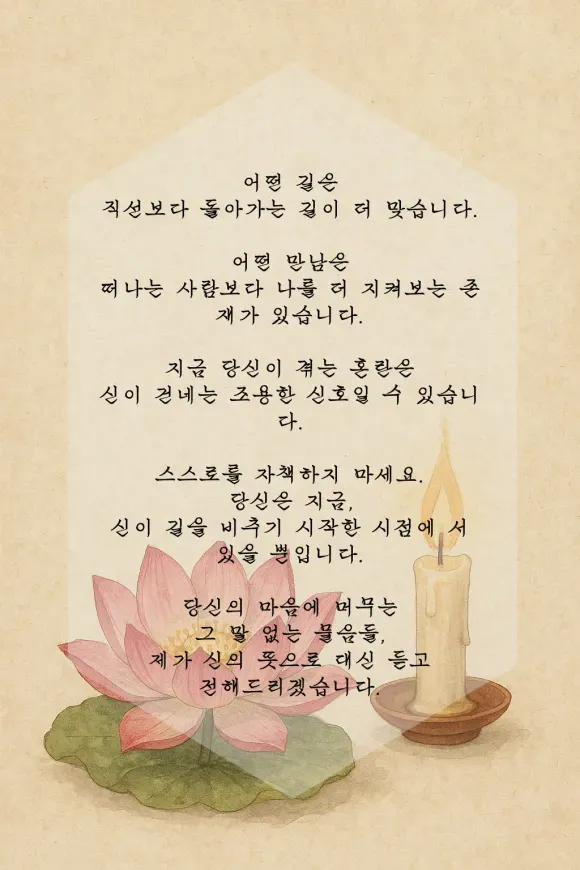 어떤 길은
직선보다 돌아가는 길이 더 맞습니다.
어떤 만남은
떠나는 사람보다 나를 더 지켜보는 존
재가 있습니다.
지금 당신이 겪는 혼란은
신이 건네는 조용한 신호일 수 있습니
다.
스스로를 자책하지 마세요.
당신은 지금,
신이 길을 비추기 시작한 시점에 서
있을 뿐입니다.
당신의 마음에 머무는
그 말 없는 물음들,
제가 신의 뜻으로 대신 듣고
전해드리겠습니다.